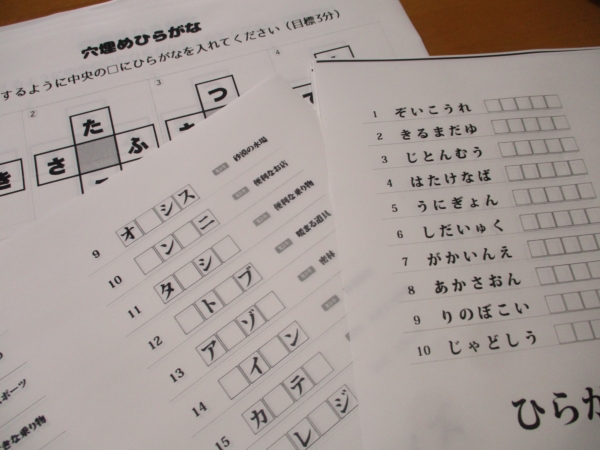 穴埋めひらがな
するように中央の□にひらがなを入れてください（目標3分）
2
3
4
た
つ
さ
ふ
き
砂漠の水場
便利なお店
便利な乗り物
暖まる道具
密林
9 オ シス
10 ンニ
11 タ シ
12 トブ
13 ア ゾ
14 イ ン
15 カ テ
レジ
ポーツ
きな乗り物
1 ぞいこうれ
2 きるまだゆ
3 じとんむう
4 はたけなば
5 うにぎょん
6 しだいゅく
7 がかいんえ
8 あかさおん
9 りのぼこい
10 じゃどしう
ひらが